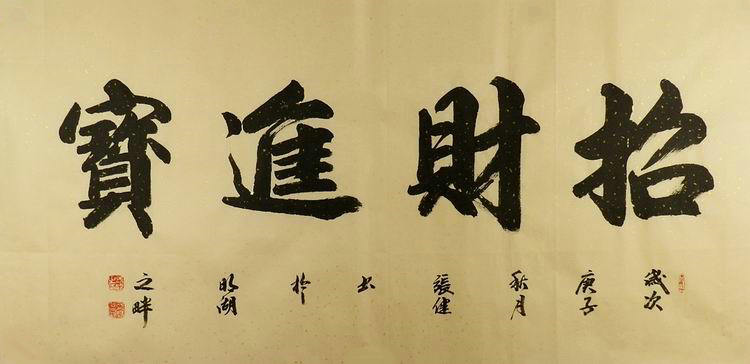 招財進寶
歲次庚子秋月張健書於明湖之畔